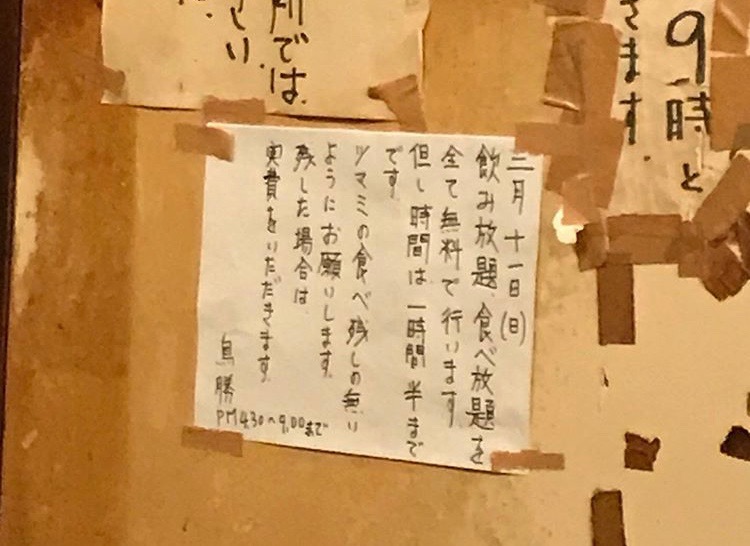 9時と
さます.
所では
しい.
三月十一日(日)
飲み放題、食べ放題を
全て無料で行います
但し時間は一時間半まで
です
ツマミの食べ残しの無い
ようにお願いします.
残した場合は
実費をいただきます.
鳥勝
PM4.30〜9.00まで